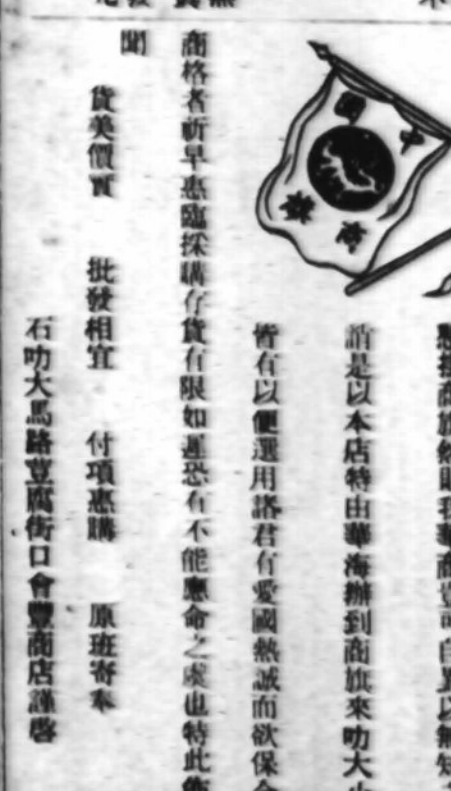 中國
商旗
然
我華商豈可自
以無知
謂是以本店特由華海辦到商旗來叻大小
皆有以便選用諸君有愛國熱誠而欲保全
商格者祈早惠臨採購存貨有限如遲恐有不能應命之處也特此佈
聞
貨美價實　批發相宜　付項惠購　原班寄奉
石叻大馬路荳腐街口會豐商店謹啓